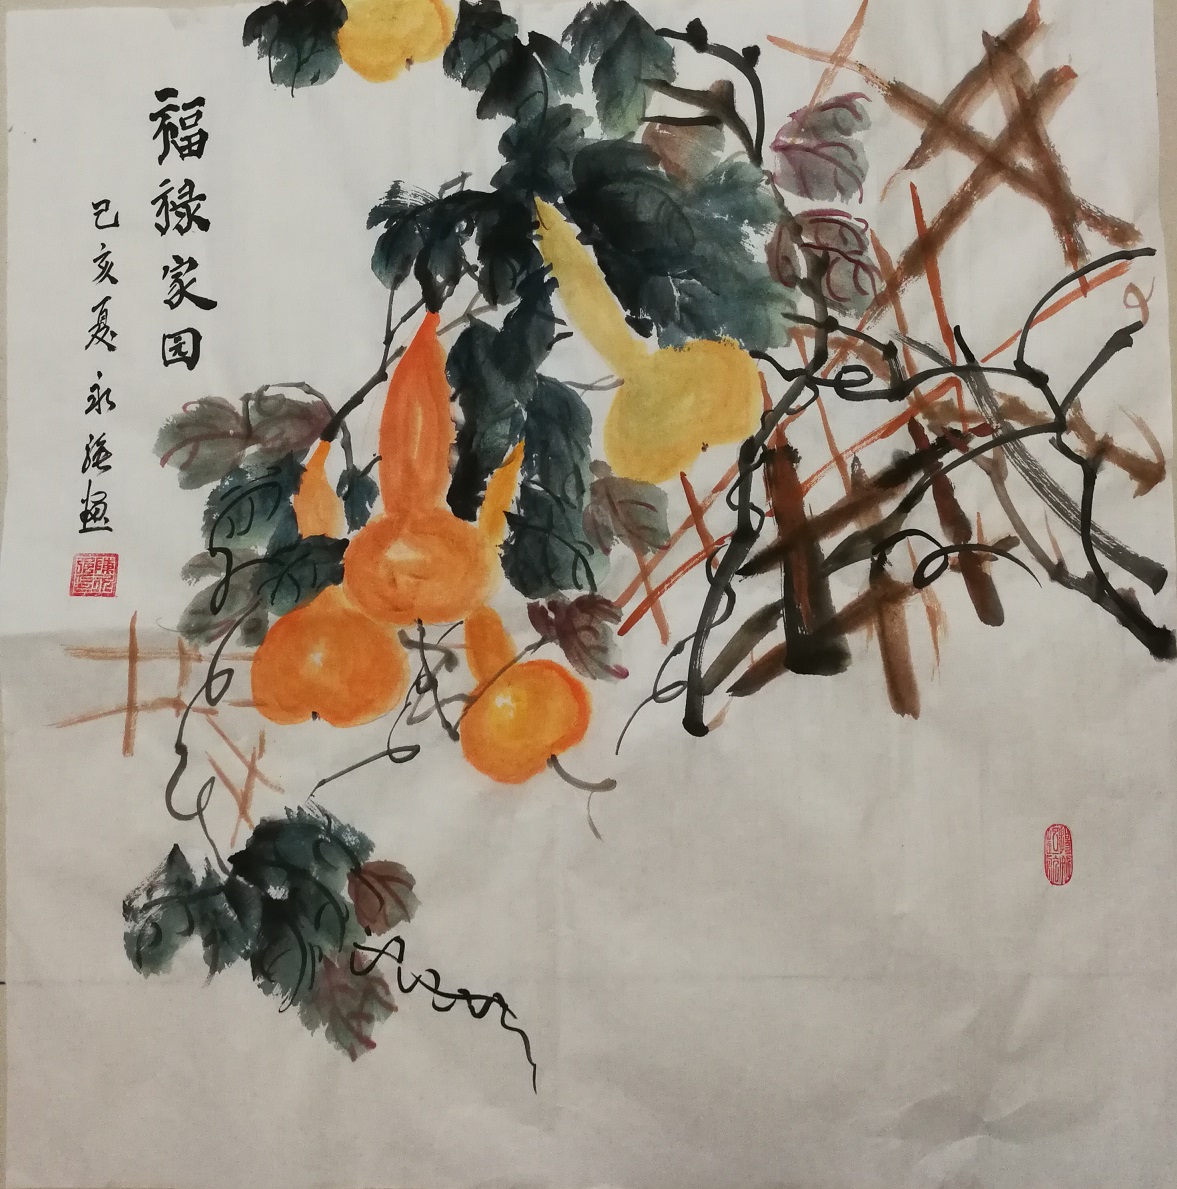 福禄家园
己亥夏永强画